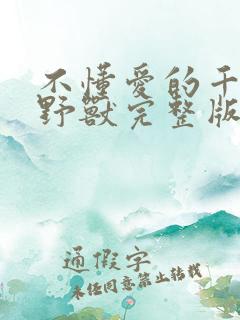 不懂愛的干
野獸完整版
通假字
未经同意禁止转载